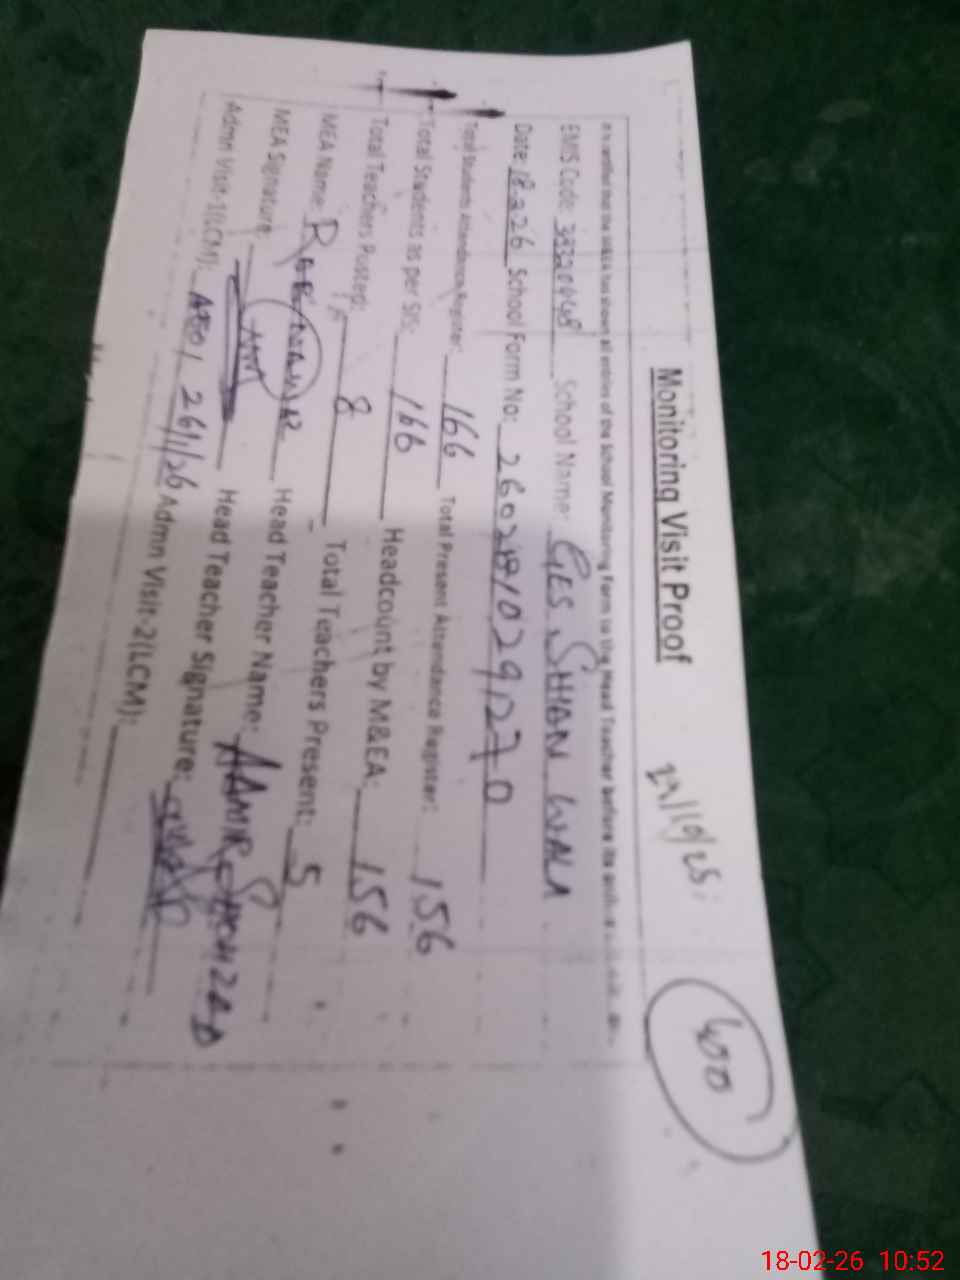 Monitoring Visit Proof 22/10/25
It is certified that the MEA has shown all entries of the School Monitoring Form to the Head Teacher before its
EMIS Code: School Name: GES SHIAN WALA
Date: 18.2.26 School Form No:
Total Students Attendance Register: 166 Total Present Attendance Register: 156
Total Students as per SIS: 166 Headcount by M&EA: 156
Total Teachers Posted: 8 Total Teachers Present: 5
MEA Name: Head Teacher Name: AAMIR SHAHZAD
MEA Signature: Head Teacher Signature:
Admn Visit-1(LCM): 26/1/26 Admn Visit-2(LCM):
18-02-26 10:52